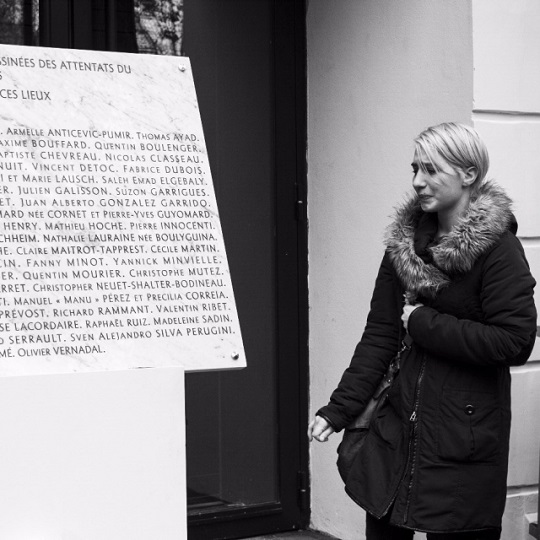 SSINÉES DES ATTENTATS DU
5
CES LIEUX
ARMELLE ANTICEVIC-PUMIR. THOMAS AYAD.
AXIME BOUFFARD. QUENTIN BOULENGER.
APTISTE CHEVREAU. NICOLAS CLASSEAU.
NUIT. VINCENT DETOC. FABRICE DUBOIS.
I ET MARIE LAUSCH. SALEH EMAD ELGEBALY.
ER. JULIEN GALISSON. SUZON GARRIGUES.
ET. JUAN ALBERTO GONZALEZ GARRIDO.
MARD NÉE CORNET ET PIERRE-YVES GUYOMARD.
HENRY. MATHIEU HOCHE. PIERRE INNOCENTI.
CHHEIM. NATHALIE LAURAINE NÉE BOULYGUINA.
HE. CLAIRE MAITROT-TAPPREST. CÉCILE MARTIN.
IN. FANNY MINOT. YANNICK MINVIELLE.
ER. QUENTIN MOURIER. CHRISTOPHE MUTEZ.
RRET. CHRISTOPHER NEUET-SHALTER-BODINEAU.
TI. MANUEL « MANU » PÉREZ ET PRECILIA CORREIA.
PRÉVOST. RICHARD RAMMANT. VALENTIN RIBET.
SE LACORDAIRE. RAPHAËL RUIZ. MADELEINE SADIN.
D SERRAULT. SVEN ALEJANDRO SILVA PERUGINI.
MÉ. OLIVIER VERNADAL.